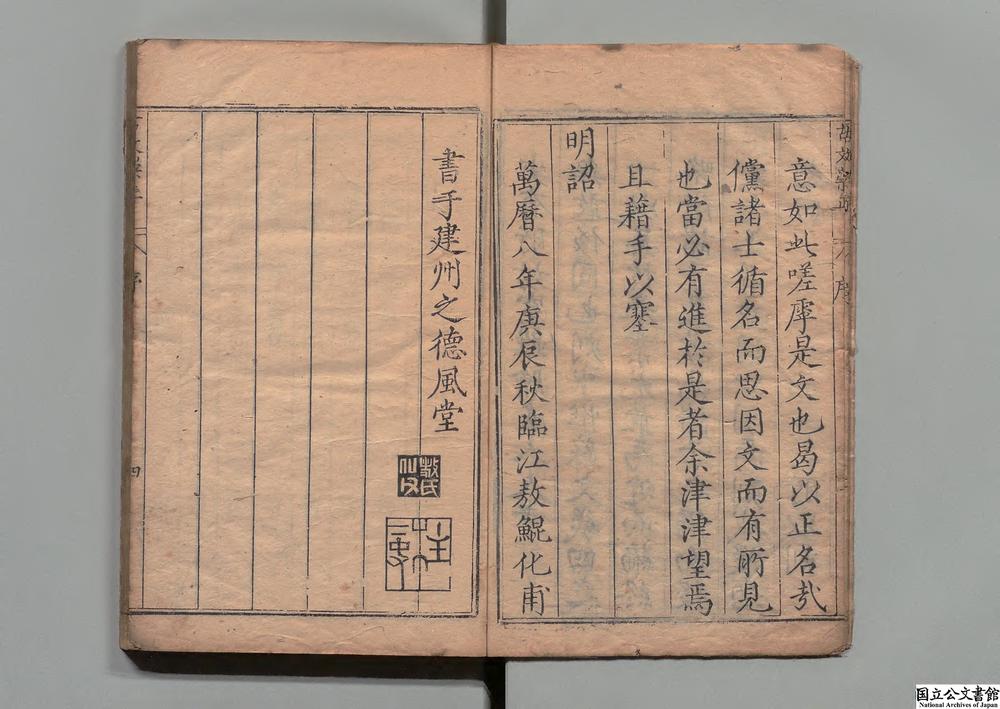 意如此嗟虖是文也曷以正名哉
儻諸士循名而思因文而有所見
也當必有進於是者余津津望焉
且藉手以塞
明詔
萬曆八年庚辰秋臨江敖鯤化甫
書手建州之德風堂
敖氏
四
国立公文書館
National Archives of Japan